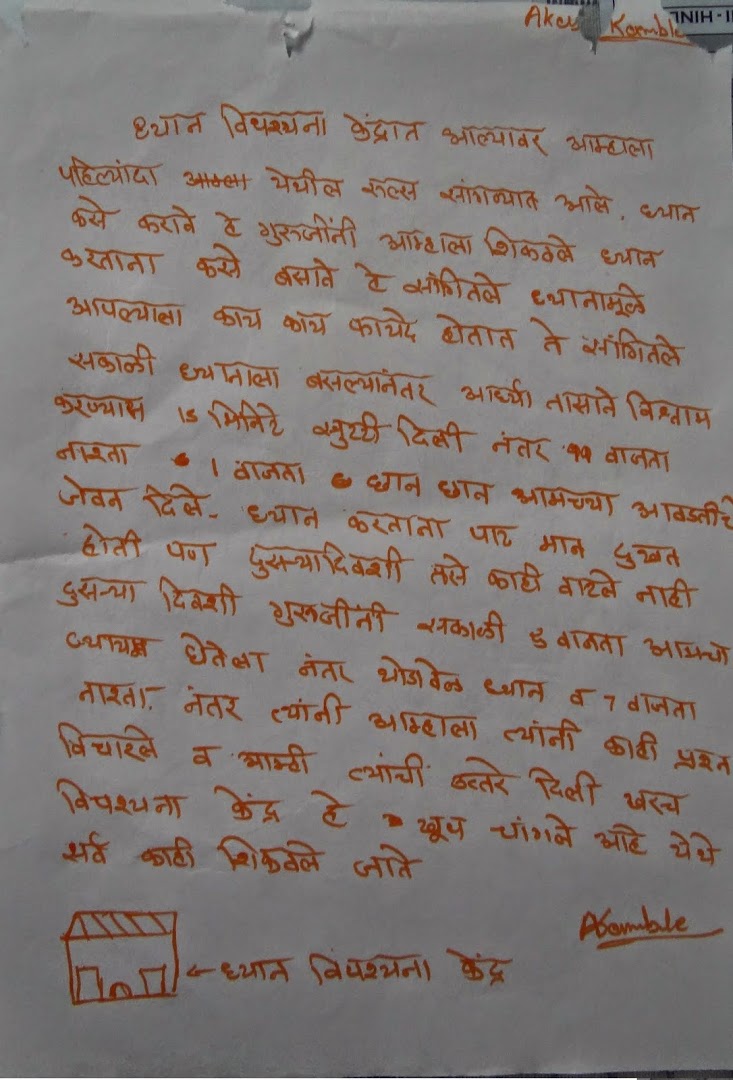 II-HINI
Akas Kamble
ध्यान विपश्यना केंद्रात आल्यावर आम्हाला
पहिल्यांदा आम्ला येथील रुल्स सांगन्यात आले. ध्यान
कसे करावे हे गुरुजींनी आम्हाला शिकवले ध्यान
करताना कसे बसावे हे सांगितले ध्यानामूळे
आपल्याला काय काय फायदे होतात ते सांगितले
सकाळी ध्यानाला बसल्यानंतर आर्ध्या तासाने विश्राम
करण्यास 15 मिनिटे सुट्टी दिली नंतर ११ वाजता
नास्ता 1 वाजता छान छान आमच्या आवडीचे
जेवन दिले. ध्यान करताना पाट मान दुखत
होती पण दुसऱ्यादिवशी तसे काही वाटले नाही
दुसऱ्या दिवशी गुरुजींनी सकाळी 5 वाजता आमचा
व्यायाम घेतला नंतर थोडावेळ ध्यान व 7 वाजता
नास्ता. नंतर त्यांनी आम्हाला त्यांनी काही प्रश्न
विचारले व आम्ही त्यांची उत्तरे दिली खरच
विपश्यना केंद्र हे खूप चांगले आहे येथे
सर्व काही शिकवले जाते
AKamble
← ध्यान विपश्यना केंद्र